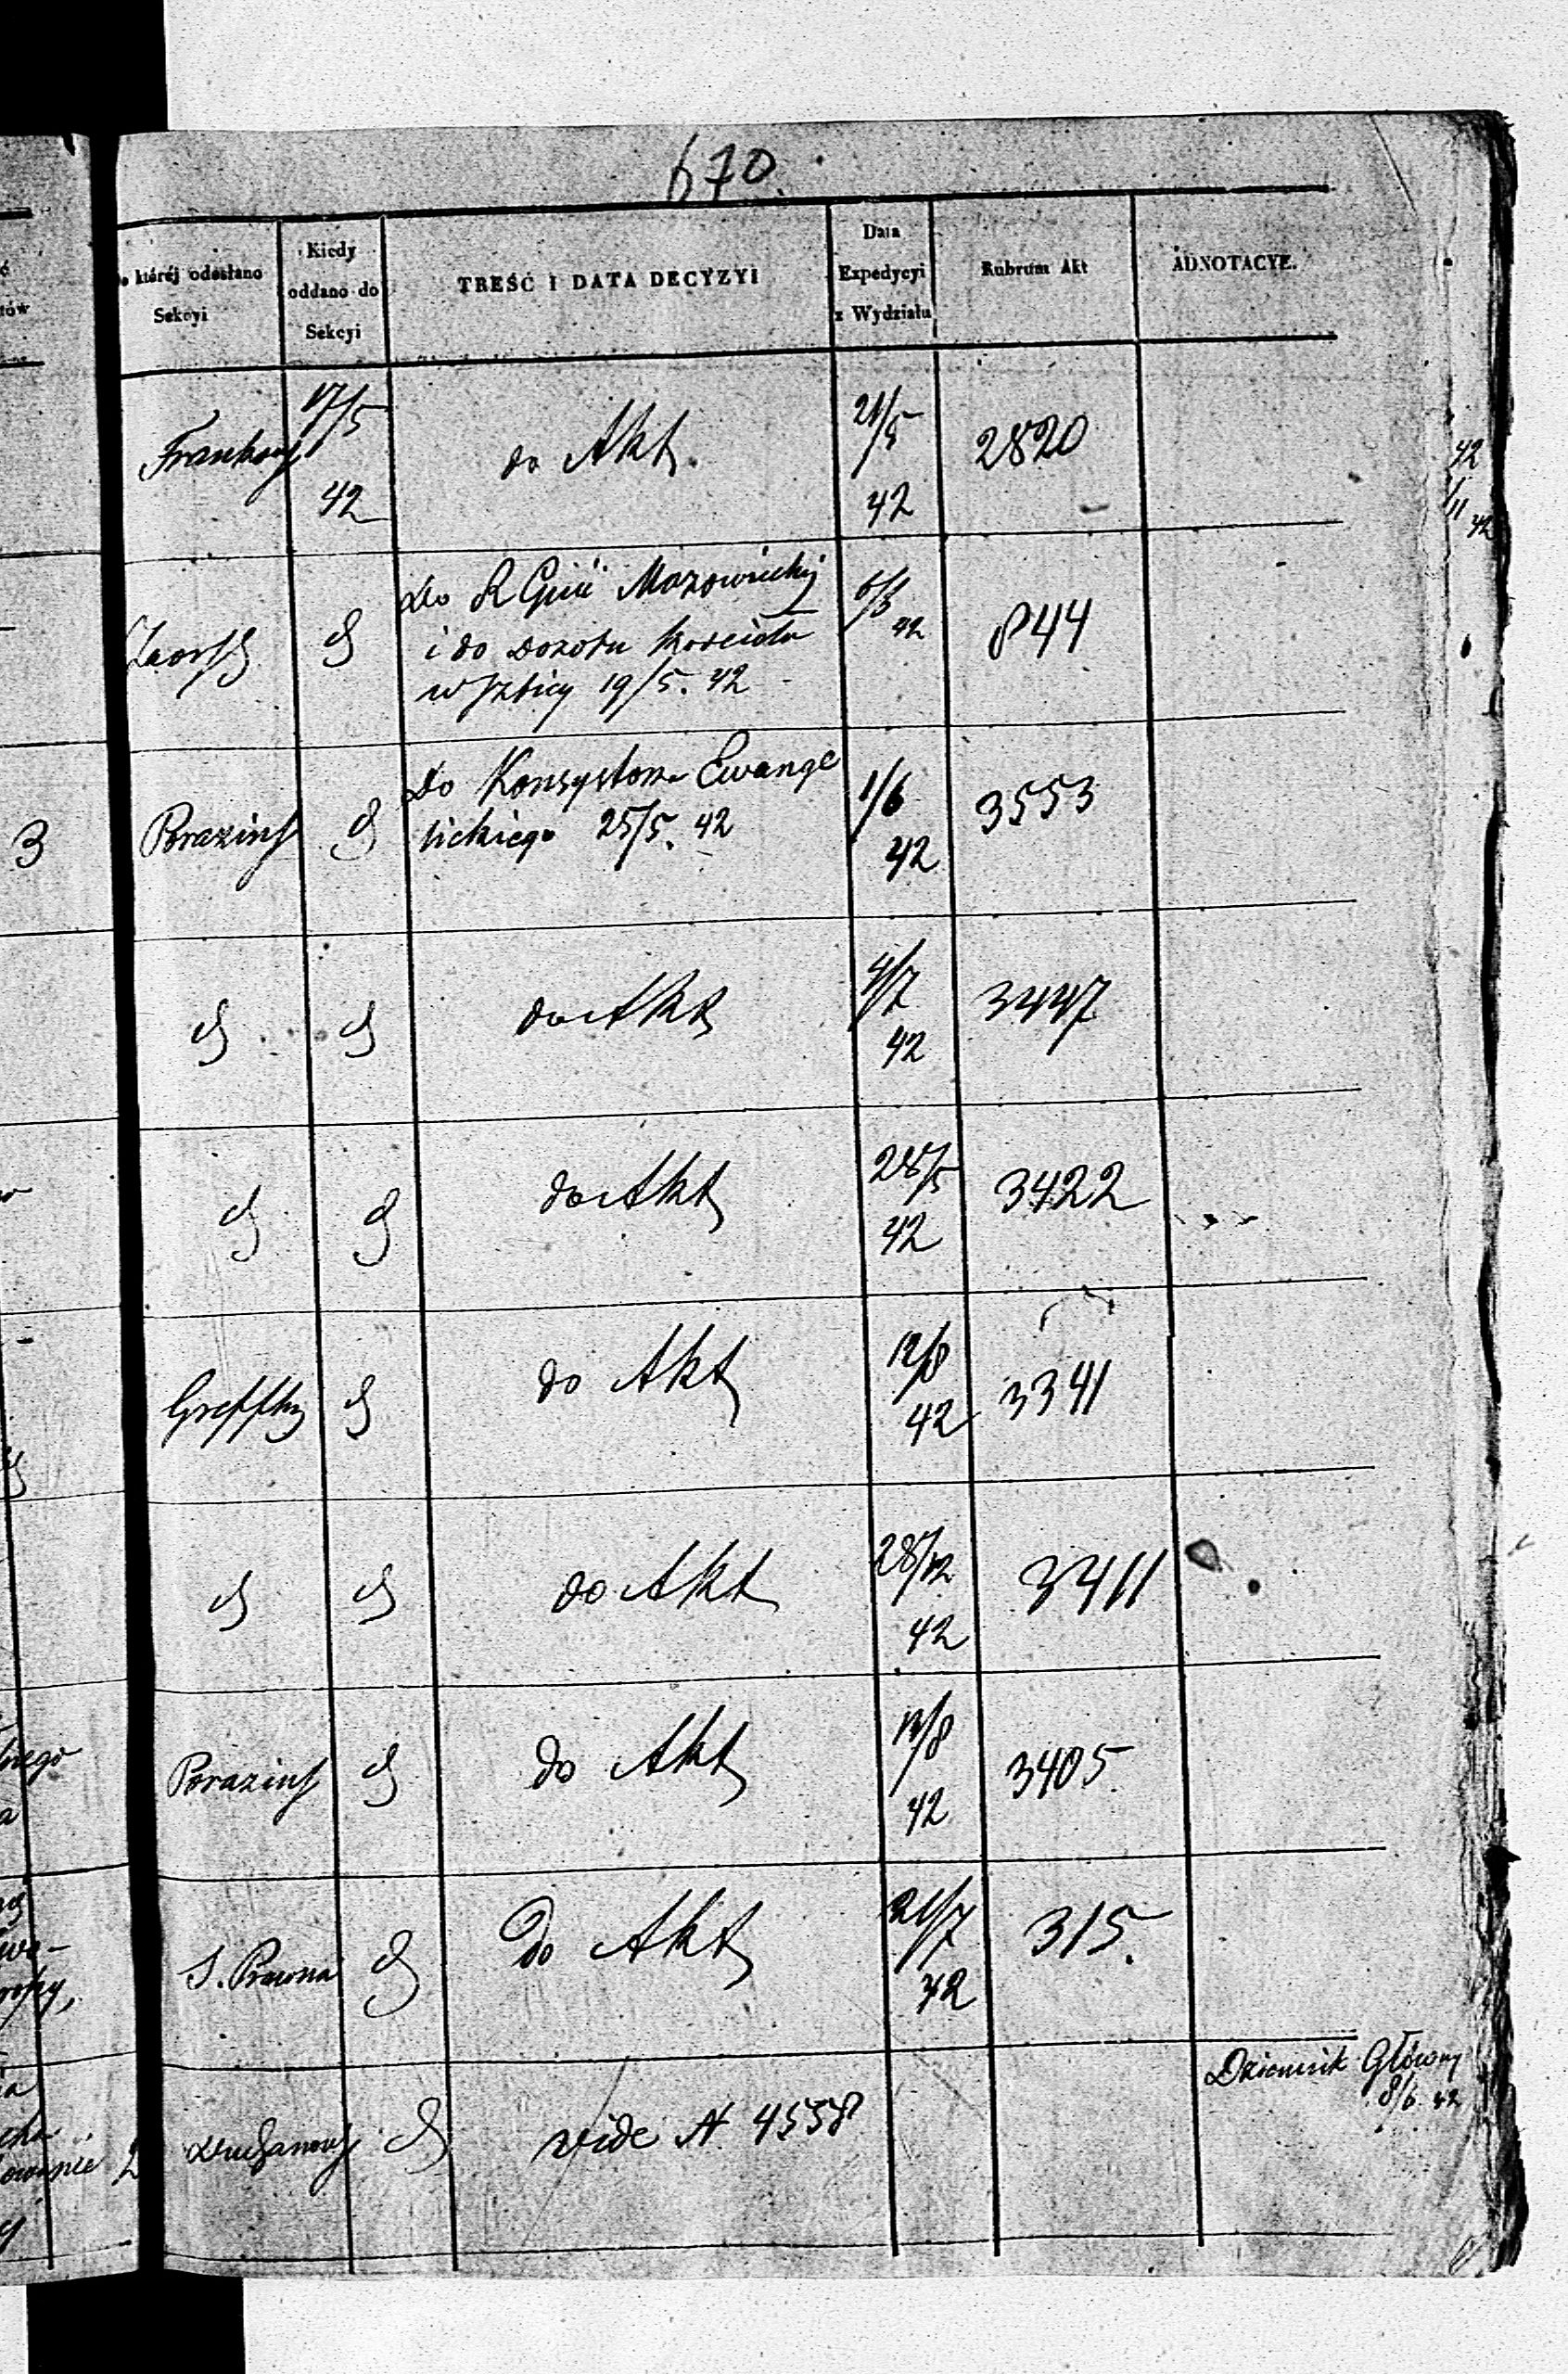 670.
któréj odesłano
Sekcyi
Kiedy
oddano do
Sekcyi
TREŚĆ I DATA DECYZYI
Data
Expedycyi
z Wydziału
Rubrum Akt
ADNOTACYE.
17/5
42
do Akt
21/5
42
2820
do R Gub Mazowieckij
i do dozoru kościoła
w Izbicy 19/5. 42
6/6 42
844
Porazins
do Konsystorza Ewange
lickiego 25/5. 42
1/6
42
3553
do Akt
4/7
42
3447
do Akt
28/5
42
3422
do Akt
12/8
42
3341
do Akt
28/12
42
3411
Porazins
do Akt
13/8
42
3405
S. Prawna
Do Akt
21/7
42
315.
vide N 4558
Dziennik Główny
8/6 42